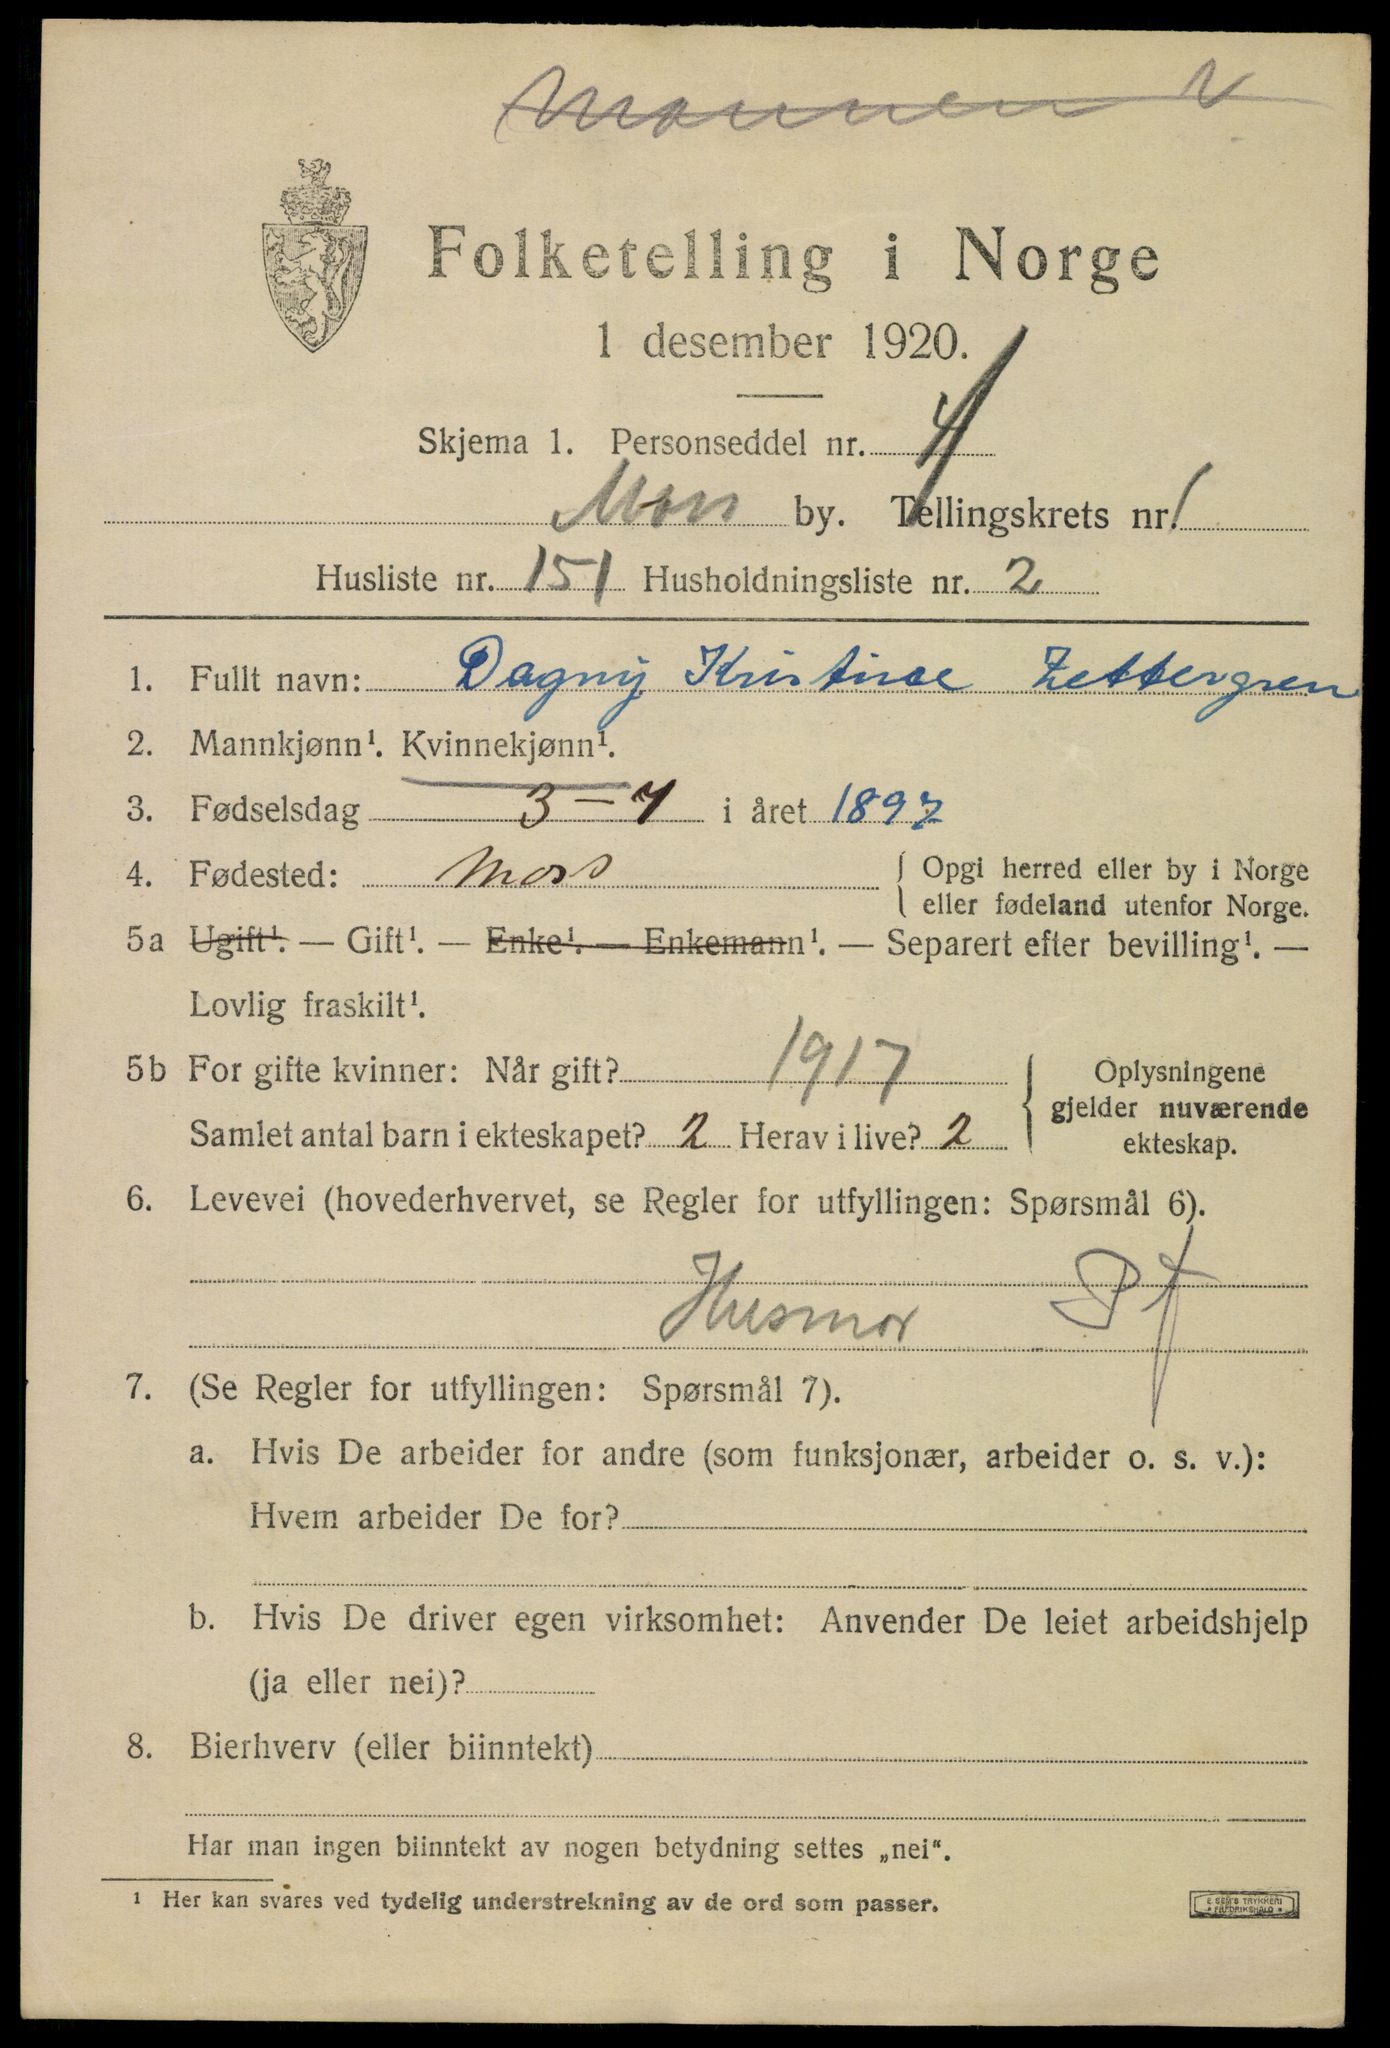 Mannen V
Folketelling i Norge
1 desember 1920.
Skjema 1. Personseddel nr. 4
Moss by. Tellingskrets nr. 1
Husliste nr. 151 Husholdningsliste nr. 2
1. Fullt navn: Dagny Kristine Zettergren
2. Mannkjønn¹. Kvinnekjønn¹.
3. Fødselsdag 3 – 7 i året 1897
4. Fødested: Moss { Opgi herred eller by i Norge
eller fødeland utenfor Norge.
5a Ugift¹. — Gift¹. — Enke¹. — Enkemann¹. — Separert efter bevilling¹. —
Lovlig fraskilt¹.
5b For gifte kvinner: Når gift? 1917
Samlet antal barn i ekteskapet? 2 Herav i live? 2
Oplysningene
gjelder nuværende
ekteskap.
6. Levevei (hovederhvervet, se Regler for utfyllingen: Spørsmål 6).
Husmor
7. (Se Regler for utfyllingen: Spørsmål 7).
a. Hvis De arbeider for andre (som funksjonær, arbeider o. s. v.):
Hvem arbeider De for?
b. Hvis De driver egen virksomhet: Anvender De leiet arbeidshjelp
(ja eller nei)?
8. Bierhverv (eller biinntekt)
Har man ingen biinntekt av nogen betydning settes „nei“.
¹ Her kan svares ved tydelig understrekning av de ord som passer.
E. SEM'S TRYKKERI
FREDRIKSHALD